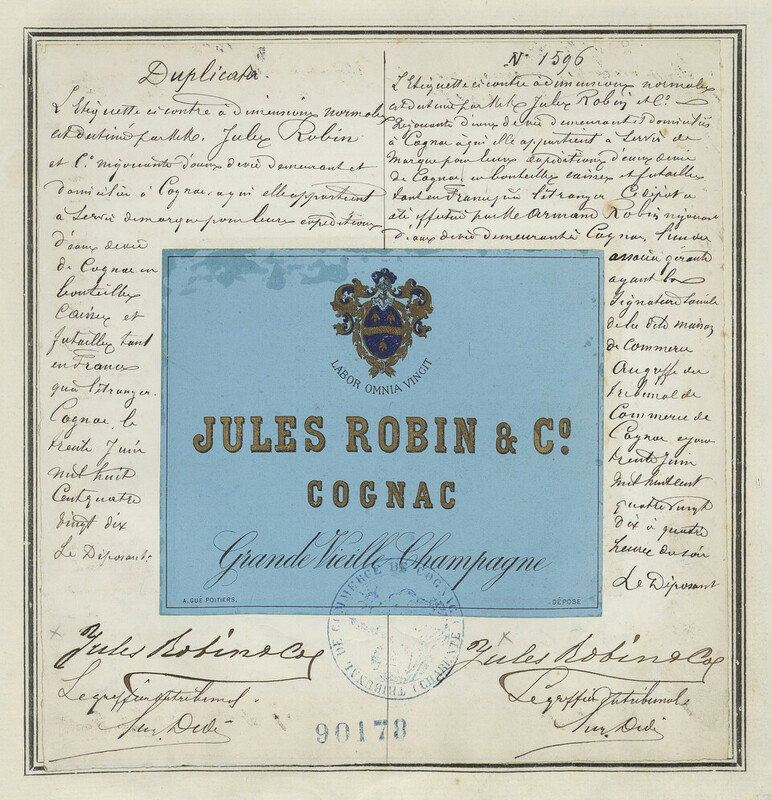 Duplicata.
L'Etiquette ci contre à dimensions normales
est destinée par MM. Jules Robin
et Cº. négociants d'eaux de vie demeurant et
domiciliés à Cognac, a qui elle appartient
à Servir de marque pour leurs expéditions
d'eaux de vie
de Cognac en
bouteilles
Caisses et
futailles tant
en France
qu'à l'étranger.
Cognac, le
trente Juin
mil huit
Cent quatre
vingt dix
Le Déposant.
Jules Robin & Co
Le greffier du tribunal.
Nº 1596
L'Etiquette ci contre à dimensions normales
est destinée par MM. Jules Robin et Cº.
Négociants d'eaux de vie demeurant et domiciliés
à Cognac a qui elle appartient à Servir de
Marque pour leurs expéditions d'eaux de vie
de Cognac, en bouteilles caisses et futailles
tant en France qu'à l'étranger. Ce dépôt a
été effectué par Mr Armand Robin négociant
d'eaux de vie demeurant à Cognac, l'un des
associés gérants
ayant la
signature sociale
de la dite maison
de Commerce
Au greffe du
tribunal de
Commerce de
Cognac ce jour
trente Juin
mil huit cent
quatre vingt
dix à quatre
heures du soir
Le Déposant
Jules Robin & Co
Le greffier du tribunal
LABOR OMNIA VINCIT
JULES ROBIN & Cº.
COGNAC
Grande Vieille Champagne
A. GUÉ POITIERS.
DÉPOSÉ
TRIBUNAL DE COMMERCE DE COGNAC (CHARENTE)
90178